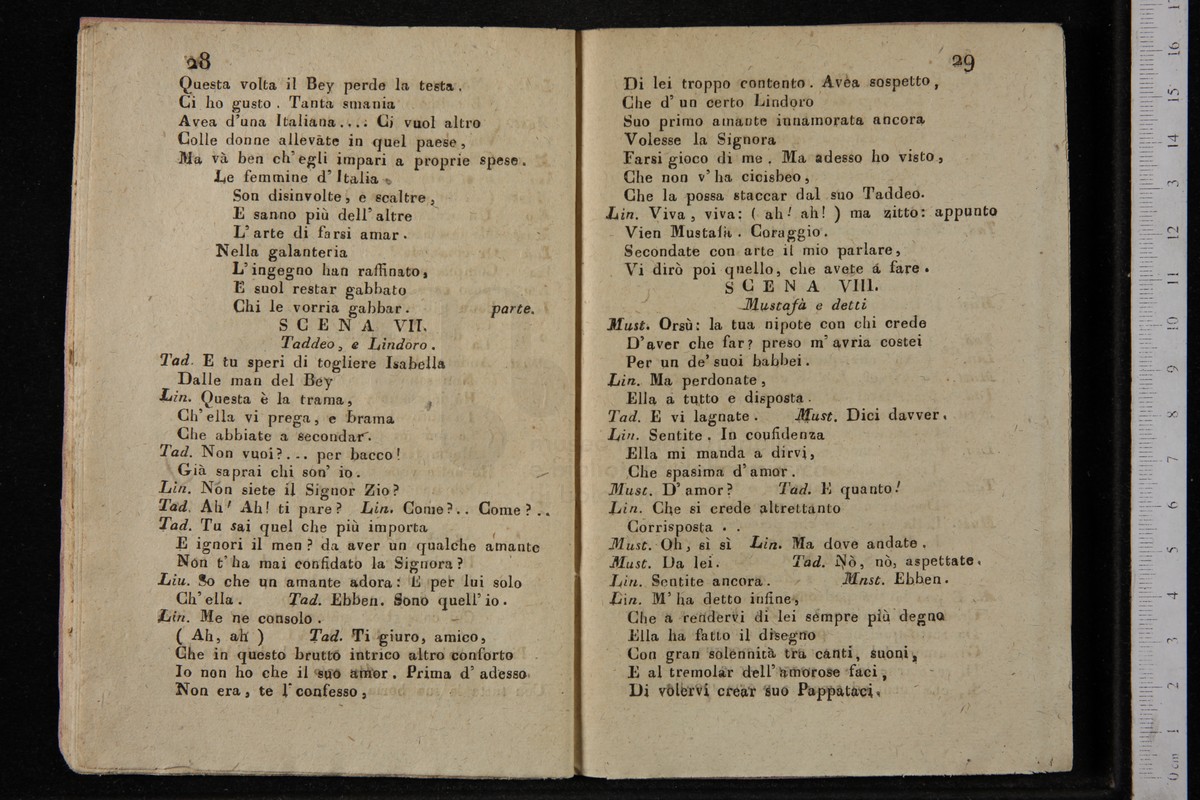 28
Questa volta il Bey perde la testa.
Ci ho gusto. Tanta smania
Avea d'una Italiana.... Ci vuol altro
Colle donne allevàte in quel paese,
Ma và ben ch'egli impari a proprie spese.
Le femmine d'Italia
Son disinvolte, e scaltre,
E sanno più dell'altre
L'arte di farsi amar.
Nella galanteria
L'ingegno han raffinato,
E suol restar gabbato
Chi le vorria gabbar. parte.
SCENA VII.
Taddeo, e Lindoro.
Tad. E tu speri di togliere Isabella
Dalle man del Bey
Lin. Questa è la trama,
Ch'ella vi prega, e brama
Che abbiate a secondar.
Tad. Non vuoi?... per bacco!
Già saprai chi son' io.
Lin. Non siete il Signor Zio?
Tad. Ah! Ah! ti pare? Lin. Come?.. Come?..
Tad. Tu sai quel che più importa
E ignori il men? da aver un qualche amante
Non t'ha mai confidato la Signora?
Liu. So che un amante adora: E per lui solo
Ch'ella. Tad. Ebben. Sono quell'io.
Lin. Me ne consolo.
( Ah, ah ) Tad. Ti giuro, amico,
Che in questo brutto intrico altro conforto
Io non ho che il suo amor. Prima d'adesso
Non era, te l'confesso,
29
Di lei troppo contento. Avèa sospetto,
Che d'un certo Lindoro
Suo primo amante innamorata ancora
Volesse la Signora
Farsi gioco di me. Ma adesso ho visto,
Che non v'ha cicisbeo,
Che la possa staccar dal suo Taddeo.
Lin. Viva, viva: ( ah! ah! ) ma zitto: appunto
Vien Mustafà. Coraggio.
Secondate con arte il mio parlare,
Vi dirò poi quello, che avete á fare.
SCENA VIII.
Mustafà e detti
Must. Orsù: la tua nipote con chi crede
D'aver che far? preso m'avria costei
Per un de' suoi babbei.
Lin. Ma perdonate,
Ella a tutto e disposta.
Tad. E vi lagnate. Must. Dici davver.
Lin. Sentite. In confidenza
Ella mi manda a dirvi,
Che spasima d'amor.
Must. D'amor? Tad. E quanto!
Lin. Che si crede altrettanto
Corrisposta . .
Must. Oh, sì sì Lin. Ma dove andate.
Must. Da lei. Tad. Nò, nò, aspettate.
Lin. Sentite ancora. Mnst. Ebben.
Lin. M'ha detto infine,
Che a rendervi di lei sempre più degno
Ella ha fatto il disegno
Con gran solennità tra canti, suoni,
E al tremolar dell'amorose faci,
Di volervi crear suo Pappataci.
0 cm 1 2 3 4 5 6 7 8 9 10 11 12 13 14 15 16 17